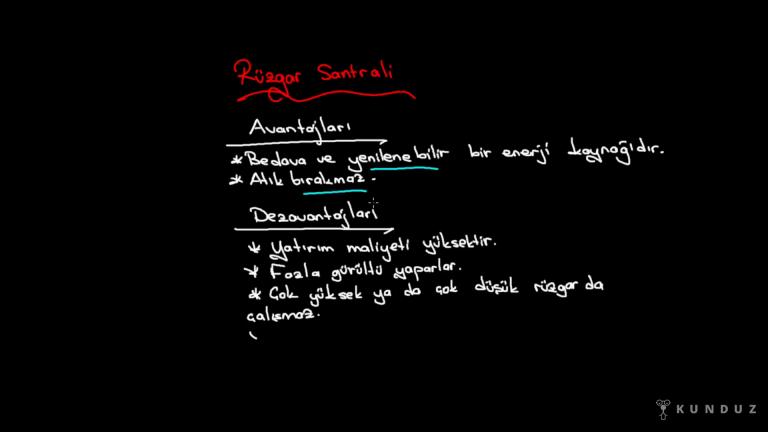 Rüzgar Santrali
Avantajları
* Bedava ve yenilenebilir bir enerji kaynağıdır.
* Atık bırakmaz.
Dezavantajları
* Yatırım maliyeti yüksektir.
* Fazla gürültü yaparlar.
* Çok yüksek ya da çok düşük rüzgar da
çalışmaz.
KUNDUZ